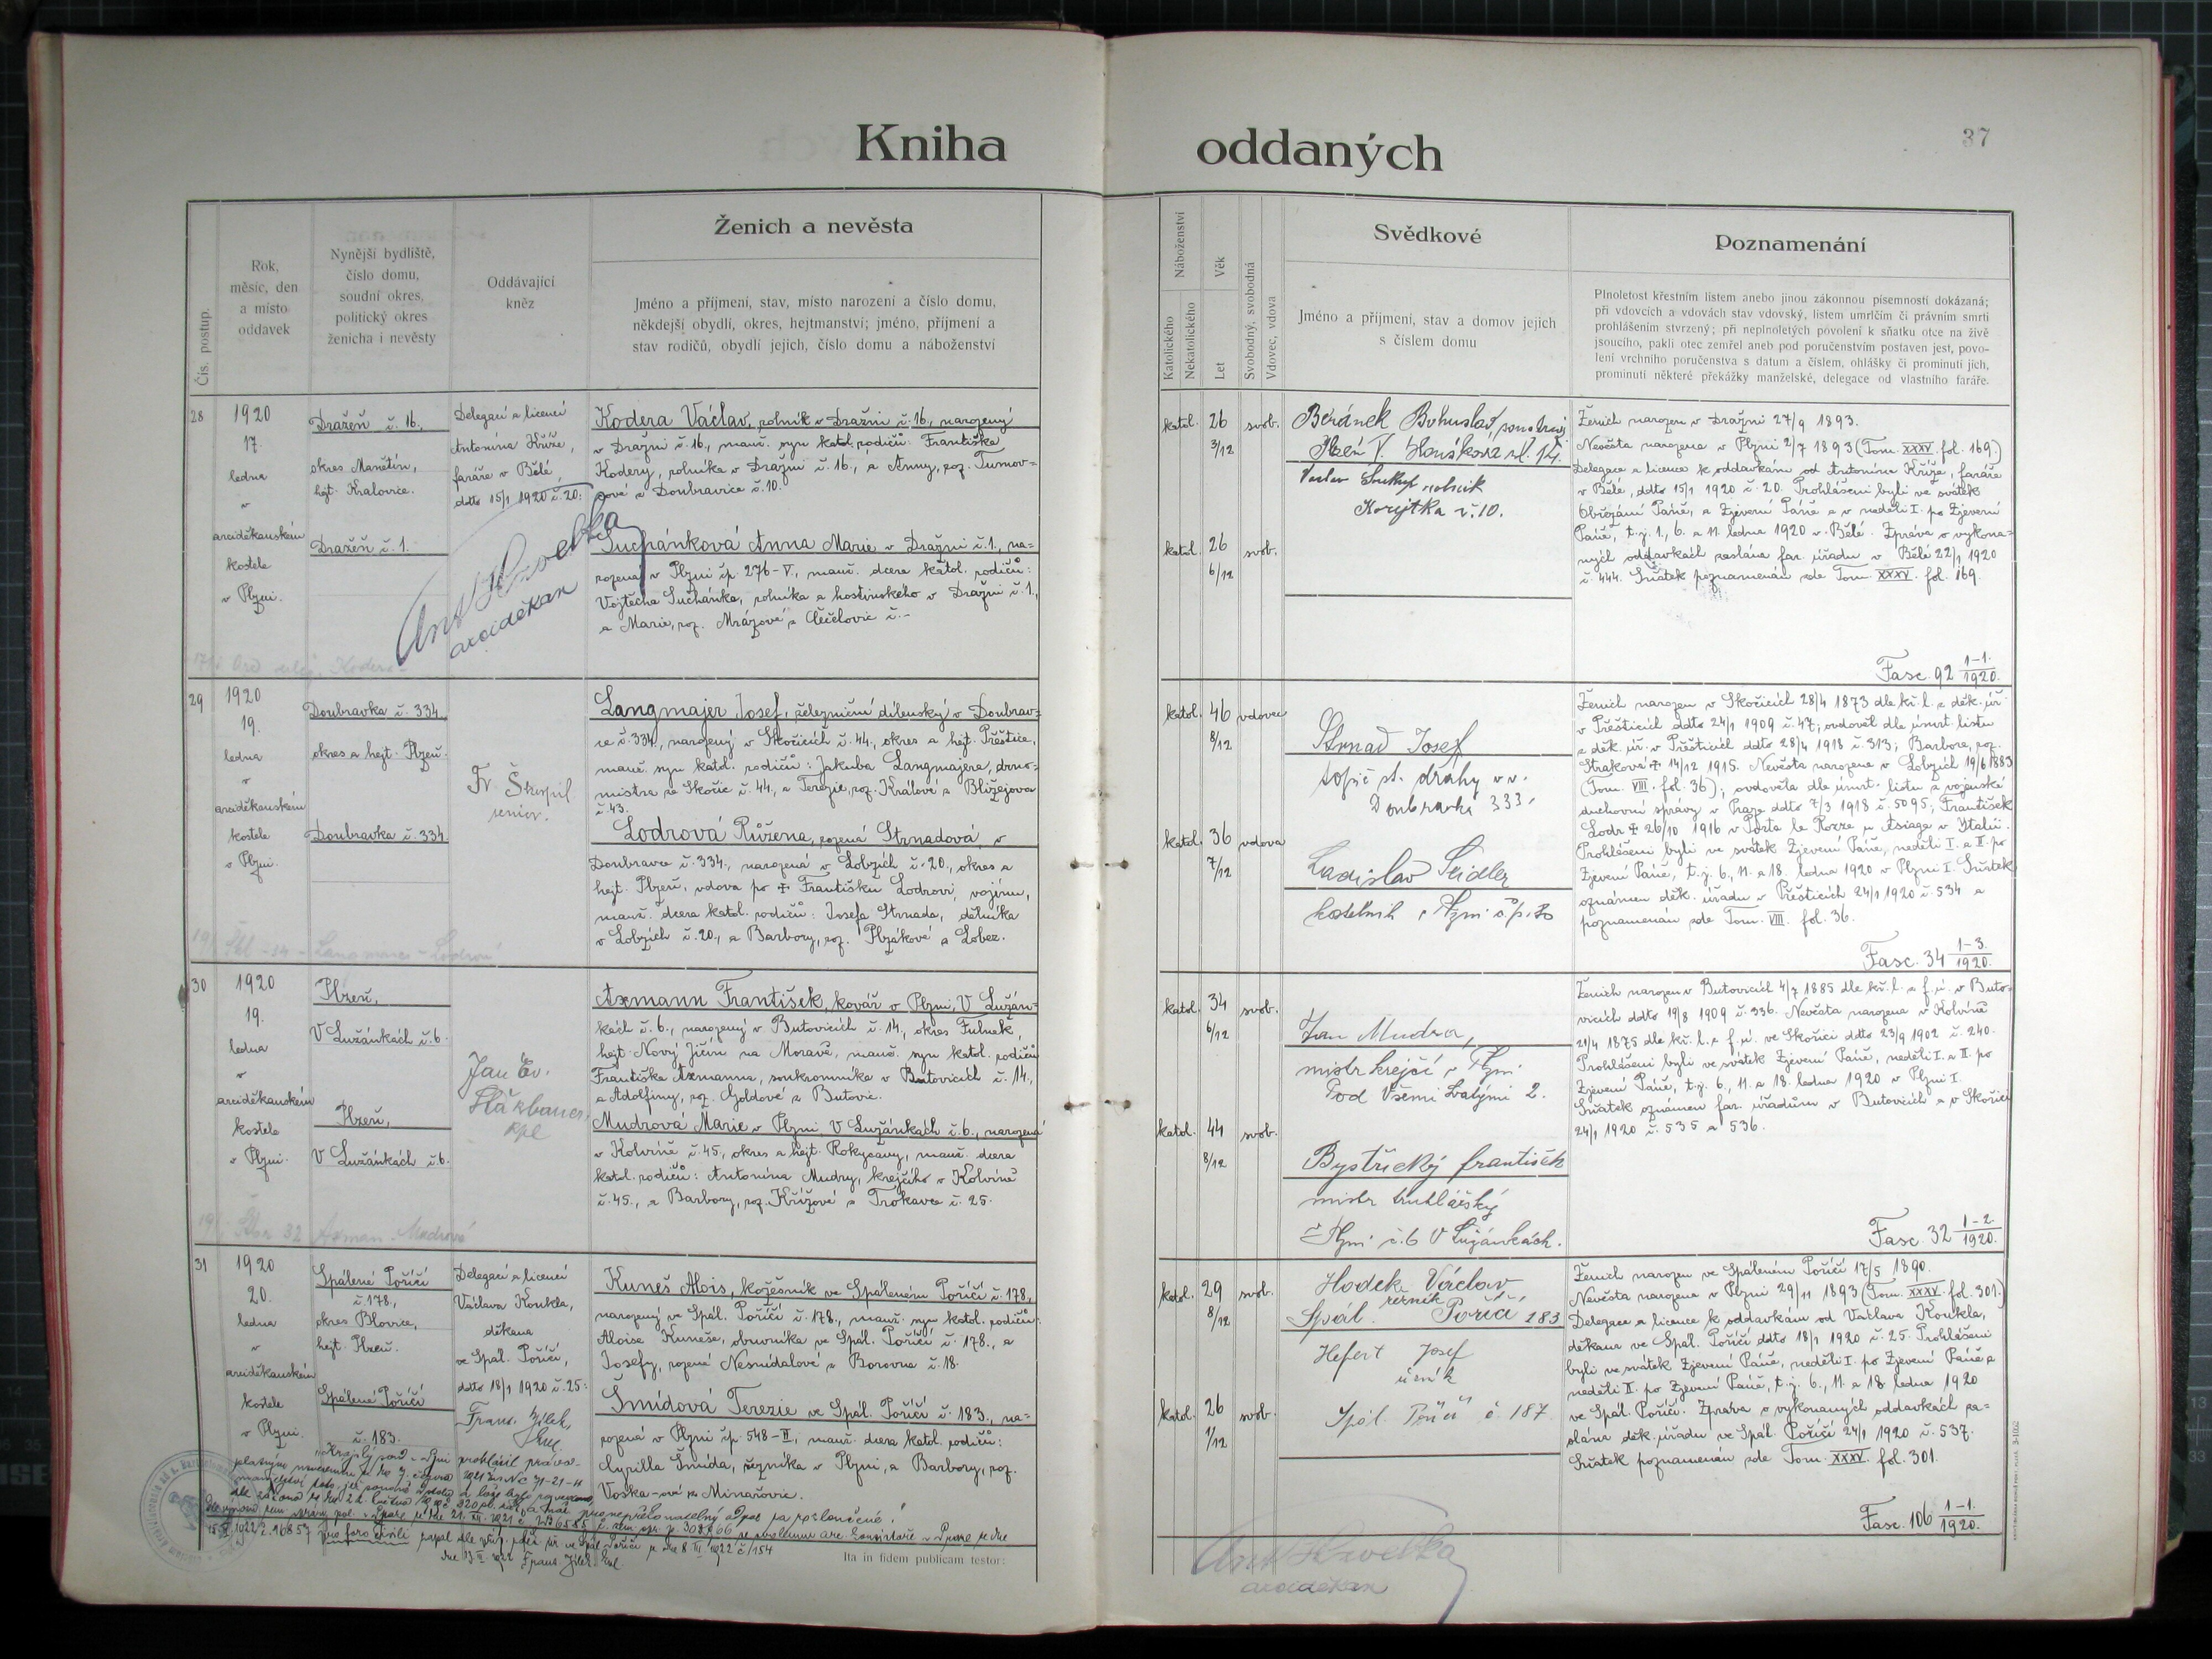 Kniha oddaných
37
Čís. postup.
Rok,
měsíc, den
a místo
oddavek
Nynější bydliště,
číslo domu,
soudní okres,
politický okres
ženicha i nevěsty
Oddávající
kněz
Ženich a nevěsta
Jméno a příjmení, stav, místo narození a číslo domu,
někdejší obydlí, okres, hejtmanství; jméno, příjmení a
stav rodičů, obydlí jejich, číslo domu a náboženství
Náboženství
Katolického
Nekatolického
Věk
Let
Svobodný, svobodná
Vdovec, vdova
Svědkové
Jméno a příjmení, stav a domov jejich
s číslem domu
Poznamenání
Plnoletost křestním listem anebo jinou zákonnou písemností dokázaná;
při vdovcích a vdovách stav vdovský, listem umrlčím či právním smrti
prohlášením stvrzený; při neplnoletých povolení k sňatku otce na živě
jsoucího, pakli otec zemřel aneb pod poručenstvím postaven jest, povo-
lení vrchního poručenstva s datum a číslem, ohlášky či prominutí jich,
prominutí některé překážky manželské, delegace od vlastního faráře.
28
1920
17.
ledna
v
arciděkanském
kostele
v Plzni.
Dražeň č. 16.,
okres Manětín,
hejt. Kralovice.
Dražeň č. 1.
Delegací a licencí
Antonína Kříže,
faráře v Bělé,
ddto 15/1 1920 č. 20:
Ant Havelka
arciděkan
Kodera Václav, rolník v Dražni č. 16., narozený
v Dražni č. 16., manž. syn katol. rodičů: Františka
Kodery, rolníka v Dražni č. 16., a Anny, roz. Tumov-
pové z Doubravice č. 10.
Suchánková Anna Marie v Dražni č. 1., na-
rozená v Plzni čp. 276-V., manž. dcera katol. rodičů:
Vojtěcha Suchánka, rolníka a hostinského v Dražni č. 1.,
a Marie, roz. Mrázové z Úěčelovic č. -
katol. 26 3/12 svob.
katol. 26 6/12 svob.
Beránek Bohuslav,
Plzeň V. Houškova ul. 14.
Václav Soukup rolník
Korýtka č. 10.
Ženich narozen v Dražni 27/9 1893.
Nevěsta narozena v Plzni 2/7 1893 (Tom. XXXV. fol. 169.)
Delegace a licence k oddavkám od Antonína Kříže, faráře
v Bělé, ddto 15/1 1920 č. 20. Prohlášeni byli ve svátek
Obřezání Páně, a Zjevení Páně a v neděli I. po Zjevení
Páně, t. j. 1., 6. a 11. ledna 1920 v Bělé. Zpráva o vykona-
ných oddavkách zaslána far. úřadu v Bělé 22/1 1920
č. 444. Sňatek poznamenán zde Tom. XXXV. fol. 169.
Fasc. 92 1-1./1920.
29
1920
19.
ledna
v
arciděkanském
kostele
v Plzni.
Doubravka č. 334.,
okres a hejt. Plzeň.
Doubravka č. 334.
Fr. Škarpil
senior.
Langmajer Josef, železniční dílenský v Doubrav-
ce č. 334., narozený v Skočicích č. 44., okres a hejt. Přeštice,
manž. syn katol. rodičů: Jakuba Langmajera, domo-
mistra ze Skočic č. 44., a Terezie, roz. Králové z Bližejova
č. 43.
Lodrová Růžena, rozená Strnadová, v
Doubravce č. 334., narozená v Lobzích č. 20., okres a
hejt. Plzeň, vdova po ‡ Františku Lodrovi, vojínu,
manž. dcera katol. rodičů: Josefa Strnada, dělníka
v Lobzích č. 20., a Barbory, roz. Plzákové z Lobez.
katol. 46 8/12 vdovec
katol. 36 7/12 vdova
Strnad Josef
topič st. dráhy v v.
Doubravki 333.
Ladislav Seidler
kostelník v Plzni
Ženich narozen v Skočicích 28/4 1873 dle kř. l. z děk. úř.
v Přešticích ddto 24/1 1909 č. 47; ovdověl dle úmrt. listu
z děk. úř. v Přešticích ddto 28/4 1918 č. 313; Barbora, roz.
Straková ‡ 14/12 1915. Nevěsta narozena v Lobzích 19/6 1883
(Tom. VIII. fol. 36); ovdověla dle úmrt. listu z vojenské
duchovní správy v Praze ddto 7/3 1918 č. 5095; František
Lodr ‡ 26/10 1916 v Porta le Rozze u Asiage v Italii.
Prohlášeni byli ve svátek Zjevení Páně, neděli I. a II. po
Zjevení Páně, t. j. 6., 11. a 18. ledna 1920 v Plzni I. Sňatek
oznámen děk. úřadu v Přešticích 24/1 1920 č. 534 a
poznamenán zde Tom. VIII. fol. 36.
Fasc. 34 1-3./1920.
30
1920
19.
ledna
v
arciděkanském
kostele
v Plzni.
Plzeň,
V Lužánkách č. 6.
Plzeň,
V Lužánkách č. 6.
Jan Ev.
kpl
Axmann František, kovář v Plzni, V Lužán-
kách č. 6., narozený v Butovicích č. 14., okres Fulnek,
hejt. Nový Jičín na Moravě, manž. syn katol. rodičů
Františka Axmanna, soukromníka v Butovicích č. 14.,
a Adolfiny, roz. Goldové z Butovic.
Mudrová Marie v Plzni, V Lužánkách č. 6., narozená
v Kolvíně č. 45., okres a hejt. Rokycany, manž. dcera
katol. rodičů: Antonína Mudry, krejčího v Kolvíně
č. 45., a Barbory, roz. Křížové z Trokavce č. 25.
katol. 34 6/12 svob.
katol. 44 8/12 svob.
Jan Mudra,
mistr krejčí v Plzni
Pod Všemi Svatými 2.
Bystřický František
mistr truhlářský
v Plzni č. 6 V Lužánkách.
Ženich narozen v Butovicích 4/7 1885 dle kř. l. z f. ú. v Buto-
vicích ddto 19/8 1909 č. 336. Nevěsta narozena v Kolvíně
21/4 1875 dle kř. l. z f. ú. ve Skořici ddto 23/9 1902 č. 240.
Prohlášeni byli ve svátek Zjevení Páně, neděli I. a II. po
Zjevení Páně, t. j. 6., 11. a 18. ledna 1920 v Plzni I.
Sňatek oznámen far. úřadům v Butovicích a v Skořici
24/1 1920 č. 535 a 536.
Fasc. 32 1-2./1920.
31
1920
20.
ledna
v
arciděkanském
kostele
v Plzni.
Spálené Poříčí
č. 178.,
okres Blovice,
hejt. Plzeň.
Spálené Poříčí
č. 183.
Delegací a licencí
Václava Koukla,
děkana
ve Spál. Poříčí,
ddto 18/1 1920 č. 25:
Frant. Jílek,
Kuneš Alois, kožešník ve Spáleném Poříčí č. 178.,
narozený ve Spál. Poříčí č. 178., manž. syn katol. rodičů:
Aloise Kuneše, obuvníka ve Spál. Poříčí č. 178., a
Josefy, rozené Nesnídalové z Borovna č. 18.
Šmídová Terezie ve Spál. Poříčí č. 183., na-
rozená v Plzni čp. 548-II., manž. dcera katol. rodičů:
Cyrilla Šmída, řezníka v Plzni, a Barbory, roz.
Voska-ové z Mirašovic.
katol. 29 8/12 svob.
katol. 26 1/12 svob.
Hodek Václav
řezník
Spál. Poříčí 183
Hefert Josef
Spál. Poříčí č. 187
Ženich narozen ve Spáleném Poříčí 17/5 1890.
Nevěsta narozena v Plzni 29/11 1893 (Tom. XXXV. fol. 301.)
Delegace a licence k oddavkám od Václava Koukla,
děkana ve Spál. Poříčí ddto 18/1 1920 č. 25. Prohlášeni
byli ve svátek Zjevení Páně, neděli I. po Zjevení Páně a
neděli II. po Zjevení Páně, t. j. 6., 11. a 18. ledna 1920
ve Spál. Poříčí. Zpráva o vykonaných oddavkách za-
slána děk. úřadu ve Spál. Poříčí 24/1 1920 č. 537.
Sňatek poznamenán zde Tom. XXXV. fol. 301.
Fasc. 106 1-1./1920.
Ita in fidem publicam testor:
Ant Havelka
arciděkan